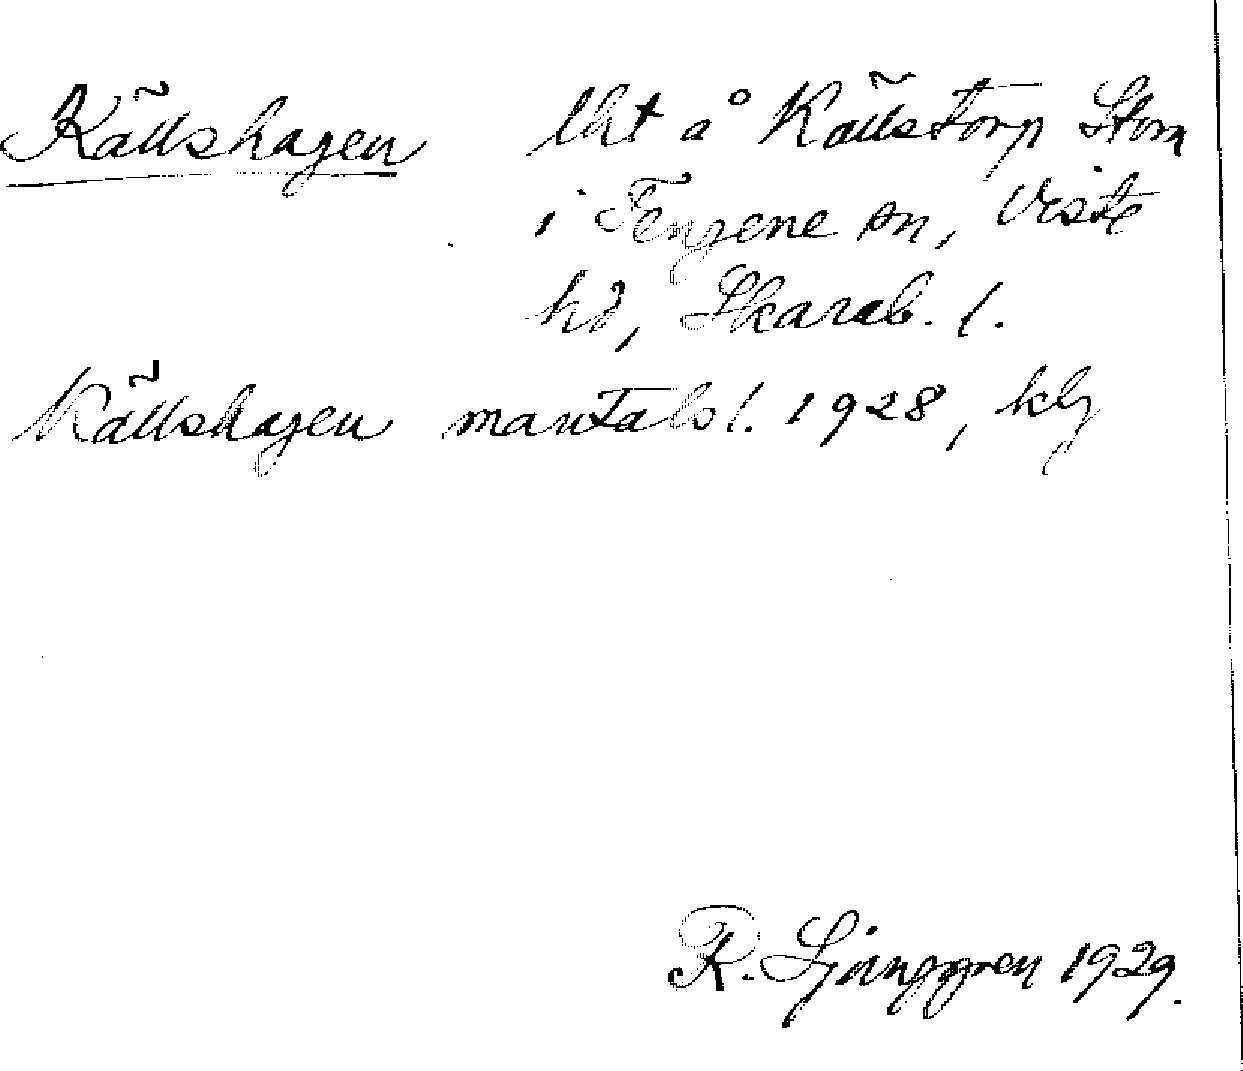 Källshagen lht å Källstorp Stom
i Tengene sn, Viste
hd, Skarab. l.
Källshagen mantalsl. 1928, klg
R. Ljunggren 1929.